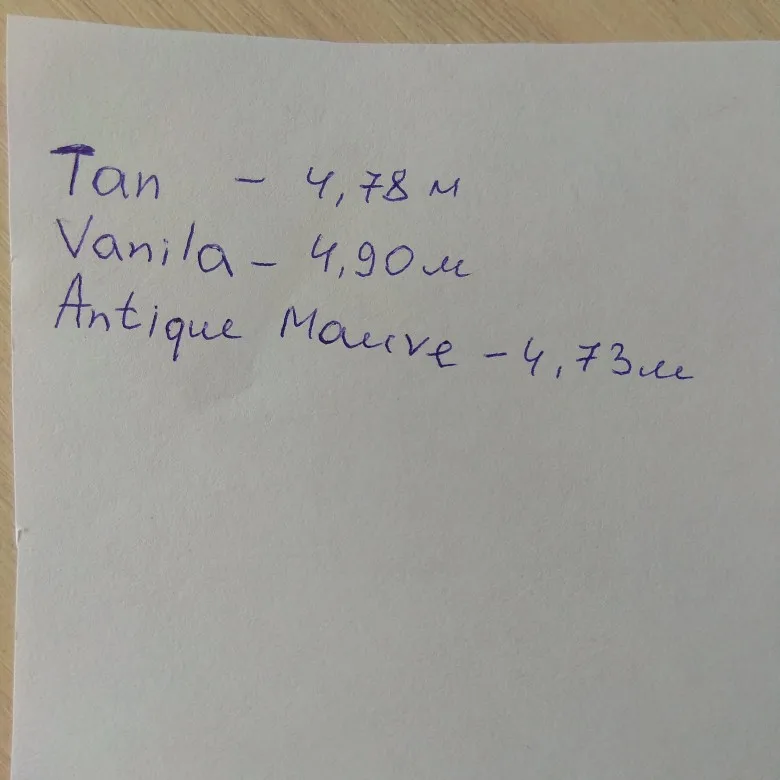 Tan - 4,78 м
Vanila - 4,90 м
Antique Mauve - 4,73 м